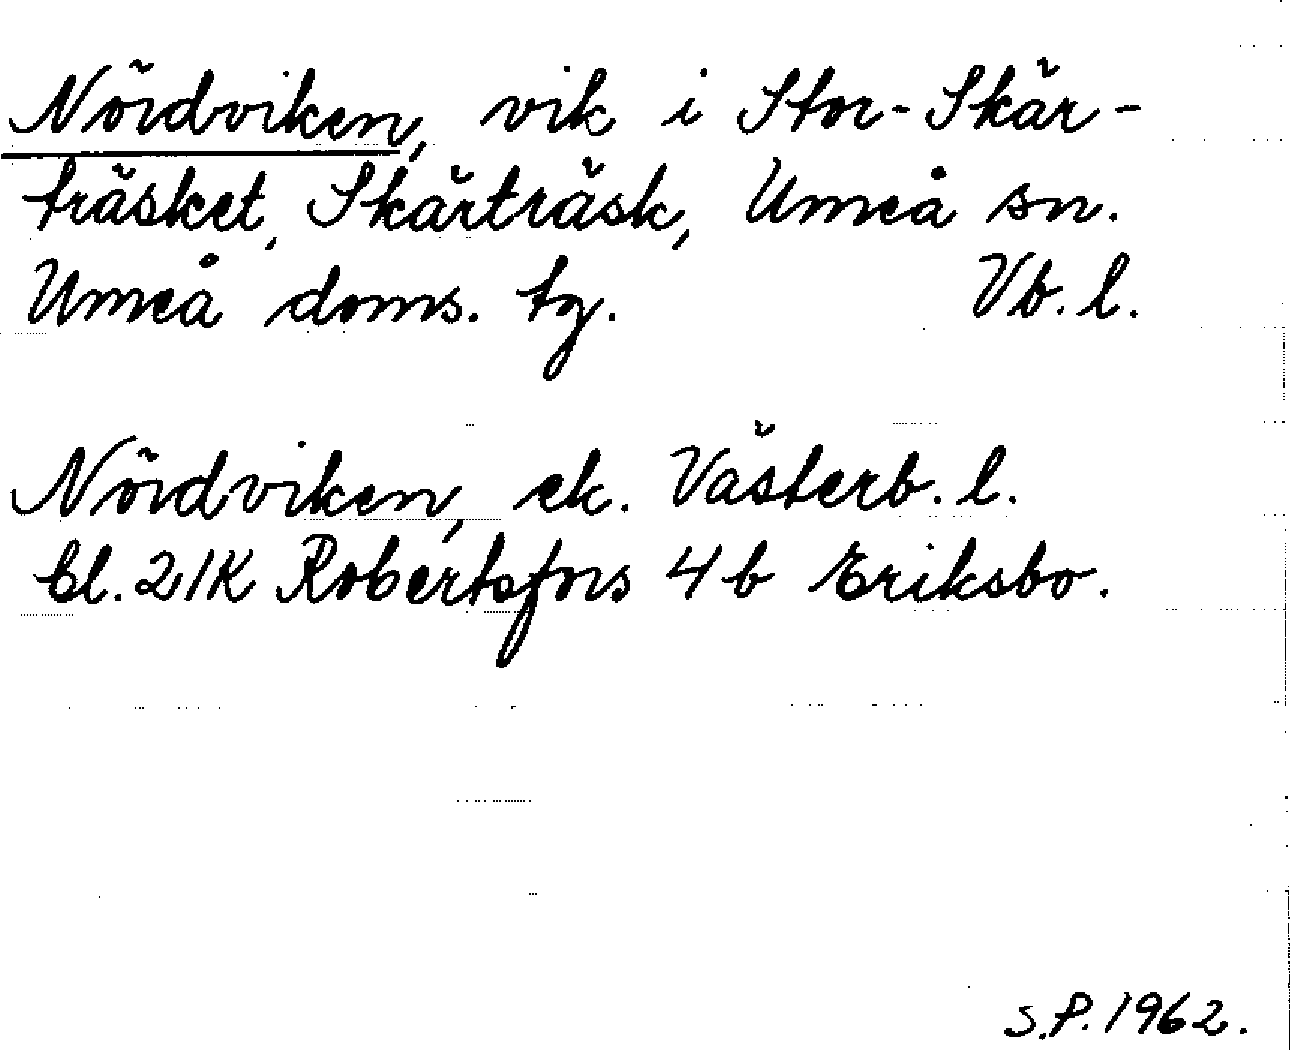 Nördviken, vik i Stor-Skär-
träsket, Skärträsk, Umeå sn.
Umeå doms. tg. Vb. l.
Nördviken, ek. Västerb. l.
Bl. 21K Robertsfors 4b Eriksbo.
S.P. 1962.